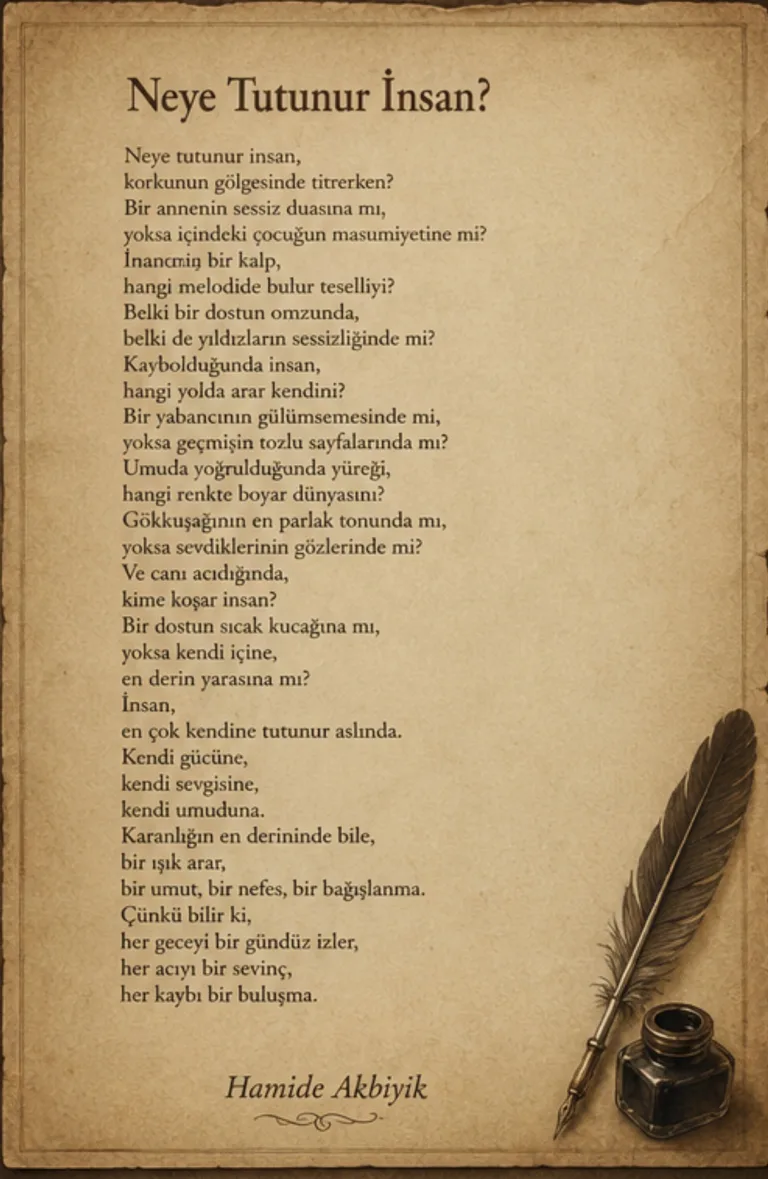 Neye Tutunur İnsan?
Neye tutunur insan,
korkunun gölgesinde titrerken?
Bir annenin sessiz duasına mı,
yoksa içindeki çocuğun masumiyetine mi?
bir kalp,
hangi melodide bulur teselliyi?
Belki bir dostun omzunda,
belki de yıldızların sessizliğinde mi?
Kaybolduğunda insan,
hangi yolda arar kendini?
Bir yabancının gülümsemesinde mi,
yoksa geçmişin tozlu sayfalarında mı?
Umuda yoğrulduğunda yüreği,
hangi renkte boyar dünyasını?
Gökkuşağının en parlak tonunda mı,
yoksa sevdiklerinin gözlerinde mi?
Ve canı acıdığında,
kime koşar insan?
Bir dostun sıcak kucağına mı,
yoksa kendi içine,
en derin yarasına mı?
İnsan,
en çok kendine tutunur aslında.
Kendi gücüne,
kendi sevgisine,
kendi umuduna.
Karanlığın en derininde bile,
bir ışık arar,
bir umut, bir nefes, bir bağışlanma.
Çünkü bilir ki,
her geceyi bir gündüz izler,
her acıyı bir sevinç,
her kaybı bir buluşma.
Hamide Akbiyik